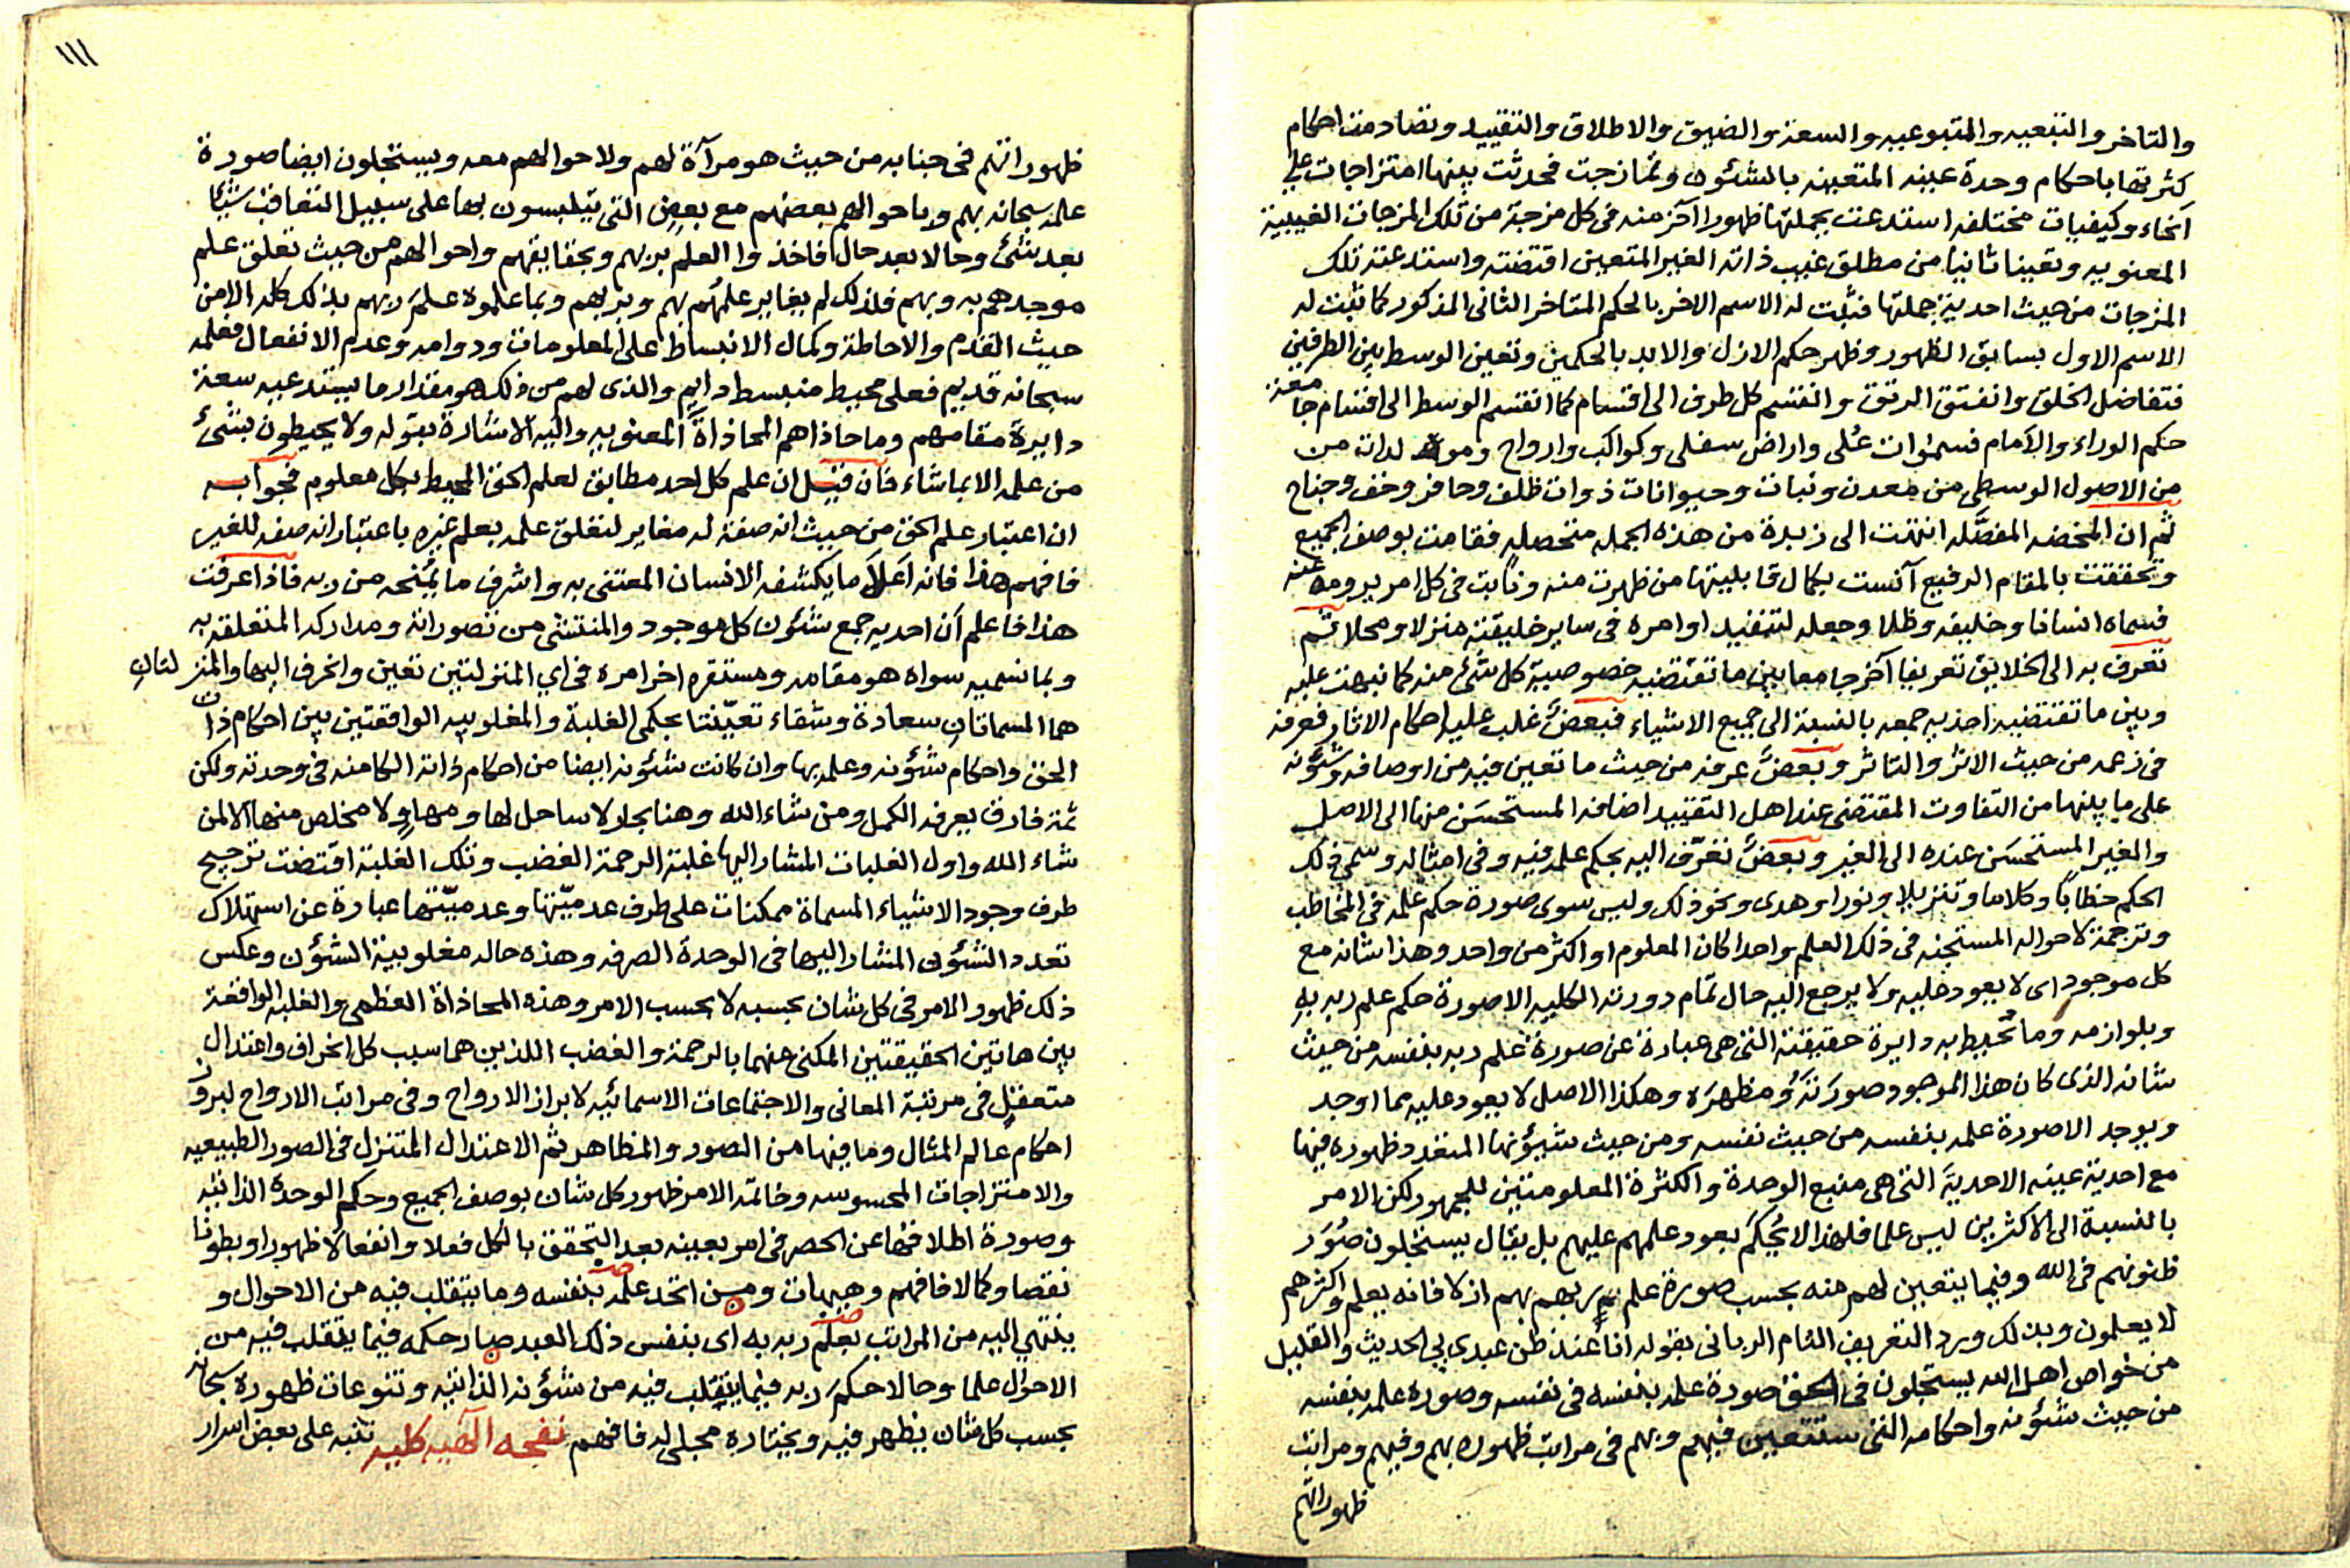 والتاخر والتبعيه والمتبوعيه والسعة والضيق والاطلاق والتقييد وتضادمت احكام
كثرتها باحكام وحدة عينه المتعينه بالشئون وتمازجت فحدثت بينها امتزاجات على
انحاء وكيفيات مختلفه استدعت بجملتها ظهورا آخر منه فى كل مزجة من تلك المزجات الغيبية
المعنويه وتعينا ثانيا من مطلق غيب ذاته الغير المتعين اقتضته واستدعته تلك
المزجات من حيث احدية جملتها فثبت له الاسم الاخر بالحكم المتاخر الثانى المذكور كما ثبت له
الاسم الاول بسابق الظهور وظهر حكم الازل والابد بالحكمين وتعين الوسط بين الطرفين
فتفاضل الخلق وانفتق الرتق وانقسم كل طرف الى اقسام كما انقسم الوسط الى اقسام جامعة
حكم الوراء والامام فسموات عُلى واراض سفلى وكواكب وارواح ومولدات من
من الاصول الوسطى من معدن ونبات وحيوانات ذوات ظلف وحافر وخف وجناح
ثم ان المخضه المفصَّله انتهت الى زبدة من هذه الجمله متحصله فقامت بوصف الجميع
وتحققت بالمقام الرفيع آنست بكمال قابليتها من ظهرت منه ونابت فى كل امر يرومه عنه
فسماه انسانا وخليفه وظلا وجعله لتنفيذ اوامره فى ساير خليقته منزلا ومحلا ثم
تعرف به الى الخلايق تعريفا آخر جامعا بين ما تقتضيه خصوصية كل شئ منه كما نبهت عليه
وبين ما تقتضيه احديه جمعه بالنسبة الى جميع الاشياء فبعضٌ غلب عليه احكام الاثار فعرفه
فى زعمه من حيث الاثر والتاثر وبعضٌ عرفه من حيث ما تعين فيه من اوصافه وشئونه
على ما بينها من التفاوت المقتضى عند اهل التقييد اضافه المستحسَن منها الى الاصل
والغير المستحسَن عنده الى الغير وبعضٌ تعرّف اليه بحكم علمه فيه وفى امثاله وسمى ذلك
الحكم خطابًا وكلاما وتنزيلا ونورا وهدى ونحو ذلك وليس سوى صورة حكم علمه فى المخاطب
وترجمة لاحواله المستجنه فى ذلك العلم واحدا كان المعلوم او اكثر من واحد وهذا شانه مع
كل موجود اى لا يعود عليه ولا يرجع اليه حال تمام دورته الكليه الا صورة حكم علم ربه بهِ
وبلوازمه وما تحيط به دايرة حقيقته التى هى عبارة عن صورة علم ربه بنفسه من حيث
شانه الذى كان هذا الموجود صورَتَهُ ومظهرَه وهكذا الاصل لا يعود عليه مما اوجد
ويوجد الا صورة علمه بنفسه من حيث نفسه ومن حيث شيؤنها المتعدد ظهوره فيها
مع احدية عينه الاحدية التى هى منبع الوحدة والكثرة المعلومتين للجمهور لكن الامر
بالنسبة الى الاكثرين ليس علما فلهذا لا يُحكم بعود علمهم عليهم بل يقال يستجلون صُوَر
ظنونهم فى الله وفيما يتعين لهم منه بحسب صورة علم ربهم بهم ازلا فانه يعلم واكثرهم
لا يعلمون وبذلك ورد التعريف التام الربانى بقوله انا عند ظن عبدى بى الحديث والقليل
من خواص اهل الله يستجلون فى الحق صورة علمه بنفسه فى نفسه وصورة علمه بنفسه
من حيث شئونه واحكامه التى ستتعين فيهم وبهم فى مراتب ظهوره بهم وفيهم ومراتب
ظهوراتهم
١١١
ظهوراتهم فى جنابه من حيث هو مرآة لهم ولاحوالهم معه ويستجلون ايضا صورة
علمه سبحانه بهم وباحوالهم بعضهم مع بعض التى يتلبسون بها على سبيل التعاقب شيئا
بعد شئ وحالا بعد حال فاخذوا العلم بربهم وبحقايقهم واحوالهم من حيث تعلق علم
موجدهم به وبهم فلذلك لم يغاير علمُهم بهم وبربهم وبما علموه علمَ ربهم بذلك كله الا من
حيث القدم والاحاطة وكمال الانبساط على المعلومات ودوامه وعدم الانفعال فعلمه
سبحانه قديم فعلى محيط منبسط دايم والذى لهم من ذلك هو مقدار ما يستدعيه سعة
دايرة مقامهم وما حاذاهم المحاذاة المعنويه واليه الاشارة بقوله ولا يحيطون بشئ
من علمه الا بما شاء فان قيل ان علم كل احد مطابق لعلم الحق المحيط بكل معلوم فجوابه
ان اعتبار علم الحق من حيث انه صفة له مغاير لتعلق علمه بعلم غيره باعتبار انه صفه للغير
فافهم هذا فانه اَعلا ما يكشفه الانسان المعتنى به واشرف ما يُمْنحه من ربه فاذا عرفت
هذا فاعلم أن احديه جمع شئون كل موجود والمنتشئ من تصوراته ومداركه المتعلقه به
وبما نسميه سواه هو مقامه ومستقره اخر امره فى اي المنزلتين تعين وانحرف اليها والمنزلتان
هما المسماتان سعادة وشقاء تعيّنتا بحكمى الغلبة والمغلوبيه الواقعتين بين احكام ذات
الحق واحكام شئونه وعلمه بها وان كانت شئونه ايضا من احكام ذاته الكامنه فى وحدته ولكن
ثمة فارق يعرفه الكمل ومن شاء الله وهنا بحار لا ساحل لها ومهاوٍ ولا مخلص منها الا لمن
شاء الله واول الغلبات المشار اليها غلبة الرحمة الغضب وتلك الغلبة اقتضت ترجيح
طرف وجود الاشياء المسماة ممكنات على طرف عدميّتها وعدميّتها عبارة عن استهلاك
تعدد الشئون المشار اليها فى الوحدة الصرفه وهذه حاله مغلوبية الشئون وعكس
ذلك ظهور الامر فى كل شان بحسبه لا بحسب الامر وهذه المحاذاة العظمى والغلبه الواقعة
بين هاتين الحقيقتين المكنى عنهما بالرحمة والغضب اللذين هما سبب كل انحراف واعتدال
متعقلٍ فى مرتبة المعانى والاجتماعات الاسمائيه لابراز الارواح وفى مراتب الارواح لبروز
احكام عالم المثال وما فيها من الصور والمظاهر ثم الاعتدال المتنزل فى الصور الطبيعيه
والامتزاجات المحسوسه وخاتمه الامر ظهور كل شان بوصف الجميع وحكم الوحدة الذاتيه
وصورة اطلاقها عن الحصر فى امر بعينه بعد التحقق بالكل فعلا وانفعالا ظهورا وبطونا
نقصا وكمالا فافهم وهيهات ومن اتحد علمه بنفسه وما يتقلب فيه من الاحوال و
ينتهي اليه من المراتب بعلم ربه به اى بنفس ذلك العبد صار حكمه فيما يتقلب فيه من
الاحوال علما وحالا حكمَ ربه فيما يتقلب فيه من شئونه الذاتيه وتنوعات ظهوره سبحانه
بحسب كل شان يظهر فيه ويختاره مجلى له فافهم نفحه آلهيه كليه تنبه على بعض اسرار